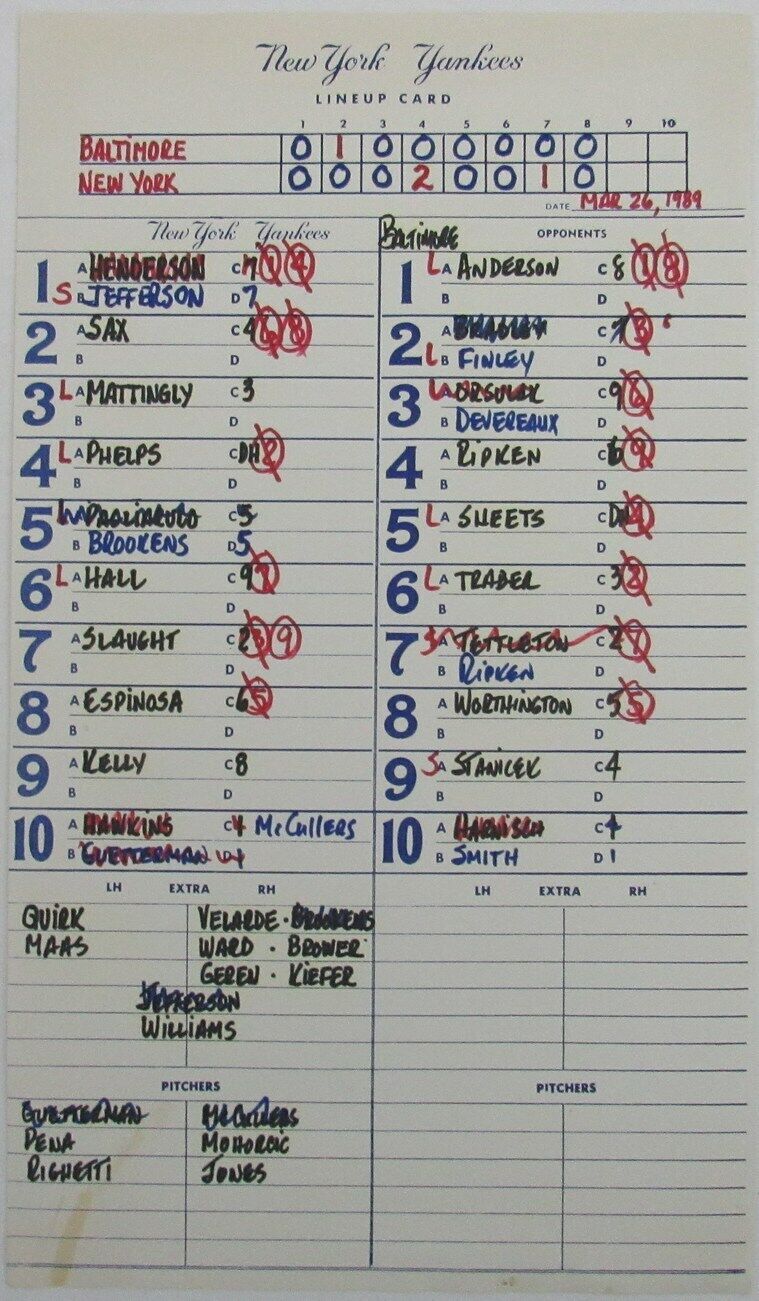 New York Yankees
LINEUP CARD
1 2 3 4 5 6 7 8 9 10
BALTIMORE 0 1 0 0 0 0 0 0
NEW YORK 0 0 0 2 0 0 1 0
DATE MAR 26, 1989
New York Yankees
1 A HENDERSON C 7 1 4
S B JEFFERSON D 7
2 A SAX C 4 6 8
B D
3 L A MATTINGLY C 3
B D
4 L A PHELPS C DH 2
B D
5 L A PAGLIARULO C 5
B BROOKENS D 5
6 L A HALL C 9 7
B D
7 A SLAUGHT C 2 3 9
B D
8 A ESPINOSA C 6 5
B D
9 A KELLY C 8
B D
10 A HAWKINS C 1 McCULLERS
B GUETTERMAN D 1
LH EXTRA RH
QUIRK VELARDE · BROOKENS
MAAS WARD · BROWER
GEREN · KIEFER
JEFFERSON
WILLIAMS
PITCHERS
GUETTERMAN McCULLERS
PENA MOHORCIC
RIGHETTI JONES
BALTIMORE OPPONENTS
1 L A ANDERSON C 8 1 8
B D
2 A BRADLEY C 7 3
L B FINLEY D
3 L A ORSULAK C 9 6
B DEVEREAUX D
4 A RIPKEN C 6 9
B D
5 L A SHEETS C DH 4
B D
6 L A TRABER C 3 2
B D
7 S A TETTLETON C 2 7
B RIPKEN D
8 A WORTHINGTON C 5 5
B D
9 S A STANICEK C 4
B D
10 A HARNISCH C 1
B SMITH D 1
LH EXTRA RH
PITCHERS